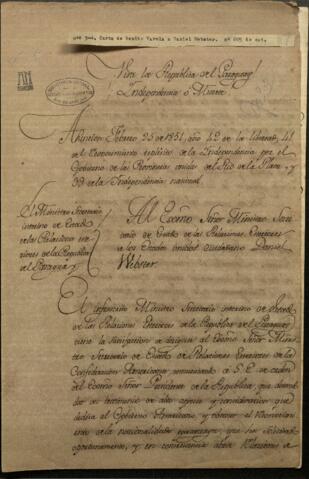 Carta de Benito Varela a Daniel Webster.
Viva la Republica del Paraguay!
Independencia ó Muerte
Febrero 25 de 1851, año 42 de la libertad, 41
del Reconocimiento explicito de la Independencia por el
Gobierno de las Provincias unidas del Rio de la Plata y
39 de la Independencia nacional.
El Ministro Secretario
interino de Estado
de las Relaciones este-
riores de la Republica
del Paraguay
Al Excmo Señor Ministro Secre-
tario de Estado de las Relaciones Esteriores
de los Estados unidos ciudadano Daniel
Webster
El infrascrito Ministro Secretario interino de Estado
de las Relaciones Esteriores de la Republica del Paraguay
tiene la satisfaccion de dirigirse al Excmo Señor Minis-
tro Secretario de Estado de Relaciones Esteriores de la
Confederacion Americana, comunicando á S.E. de orden
del Excmo Señor Presidente de la Republica, que
de testimonio de alto aprecio y consideracion que
al Gobierno Americano y obtener el Reconocimi-
ento de la nacionalidad paraguaya, que
oportunamente, y en